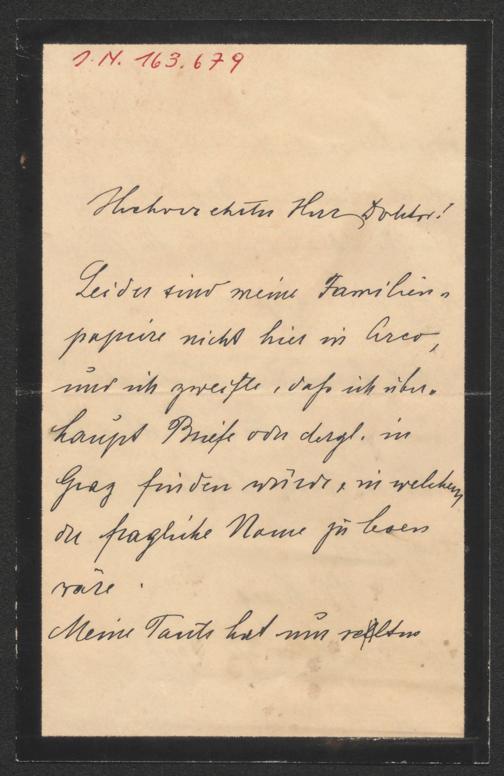 J.N. 163.679
Hochverehrter Herr Doktor!
Leider sind meine Familien-
papiere nicht hier in Arco,
und ich zweifle, daß ich über-
haupt Briefe oder dergl. in
Graz finden würde, in welchem
der fragliche Name zu lesen
wäre.
Meine Tante hat nur selten